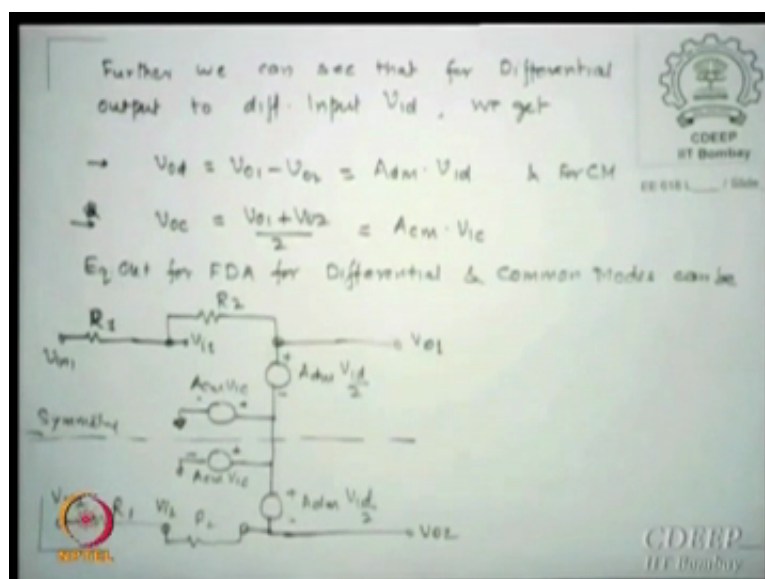 Further we can see that for Differential
output to diff. Input Vid, we get
→ Vod = Vo1 - Vo2 = Adm · Vid & For CM
→ Voc = Vo1 + Vo2 / 2 = Acm · Vic
Eq Ckt for FDA for Differential & Common Modes can be
R2
R1
Vin1
Vi1
Vo1
Adm Vid/2
Acm Vic
Symmetric
Acm Vic
Adm Vid/2
R1
Vi2
R2
Vo2
CDEEP
IIT Bombay
EE 618 L / Slide
NPTEL
CDEEP
IIT Bombay